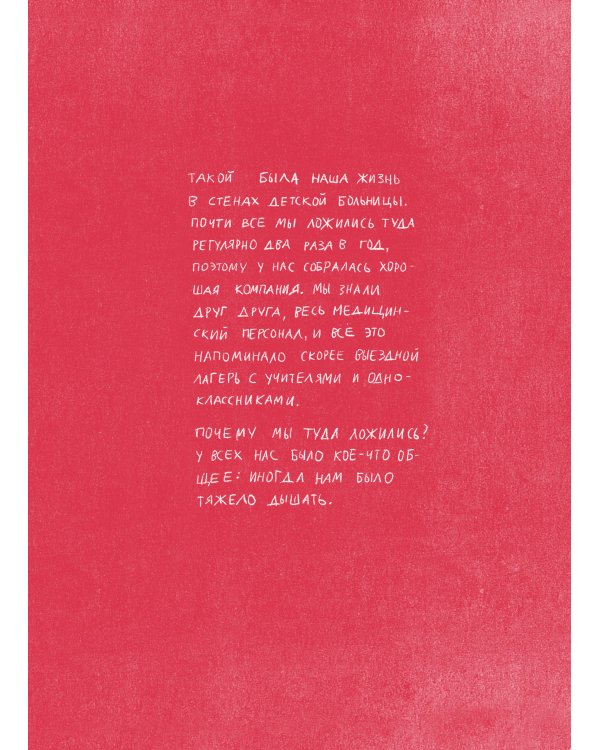 ТАКОЙ БЫЛА НАША ЖИЗНЬ
В СТЕНАХ ДЕТСКОЙ БОЛЬНИЦЫ.
ПОЧТИ ВСЕ МЫ ЛОЖИЛИСЬ ТУДА
РЕГУЛЯРНО ДВА РАЗА В ГОД,
ПОЭТОМУ У НАС СОБРАЛАСЬ ХОРО-
ШАЯ КОМПАНИЯ. МЫ ЗНАЛИ
ДРУГ ДРУГА, ВЕСЬ МЕДИЦИН-
СКИЙ ПЕРСОНАЛ, И ВСЁ ЭТО
НАПОМИНАЛО СКОРЕЕ ВЫЕЗДНОЙ
ЛАГЕРЬ С УЧИТЕЛЯМИ И ОДНО-
КЛАССНИКАМИ.
ПОЧЕМУ МЫ ТУДА ЛОЖИЛИСЬ?
У ВСЕХ НАС БЫЛО КОЕ-ЧТО ОБ-
ЩЕЕ: ИНОГДА НАМ БЫЛО
ТЯЖЕЛО ДЫШАТЬ.